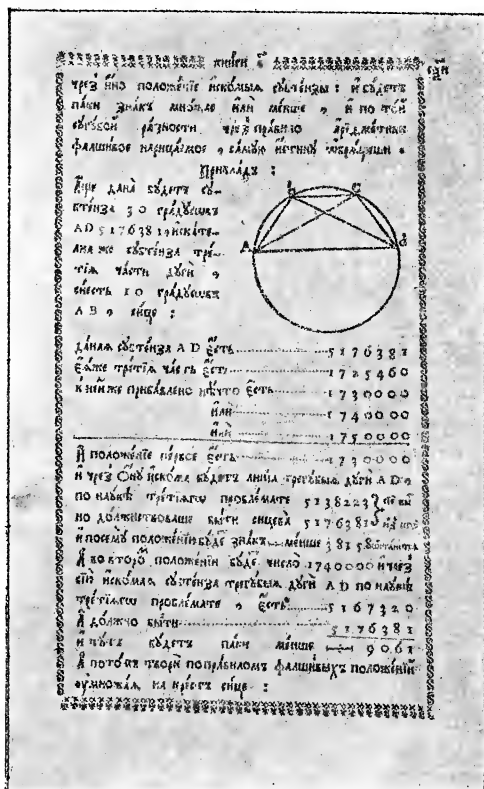 книги в҃
чрез̾ нно положенїе искомыя субтензы : и будетъ
паки знакъ множае или меньше , и по той
разности чрез̾ правило арїѳметики
фалшивое нарицаемое , самую истину
Прикладъ :
Аще дана будетъ суб-
тенза 30 градусовъ
AD 5176381 искате-
лна же субтенза тре-
тїя части дуги ,
сиесть 10 градусовъ
AB , сице :
A b c d
Данная субтенза AD есть 5176381
Ея же третїя часть есть 1725460
К ней же прибавлено нѣчто есть 1730000
или 1740000
или 1750000
А положенїе первое есть 1730000
и чрез̾ Ону искома будетъ линїа трегубыя дуги AD
по наукѣ третїягѡ проблемате 5138223
но должствоваше быти сицева 5176381
и посему положенїи буде знакъ меньше 38158
А во второ положенїи буде число 1740000 и чрез̾
сїю искомая субтенза трегубыя дуги AD по наукѣ
третїягѡ проблемате , есть 5167320
А должно быти 5176381
и будетъ паки меньше 9061
А потомъ твори по правиломъ фалшивыхъ положенїй
умножая на крестъ сице :